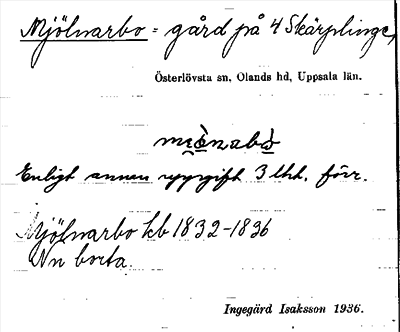 Mjölnarbo = gård på 4 Skärplinge,
Österlövsta sn, Olands hd, Uppsala län.
Enligt annan uppgift 3 tht. förr.
Mjölnarbo kb 1832-1836
Nn borta.
Ingegärd Isaksson 1936.